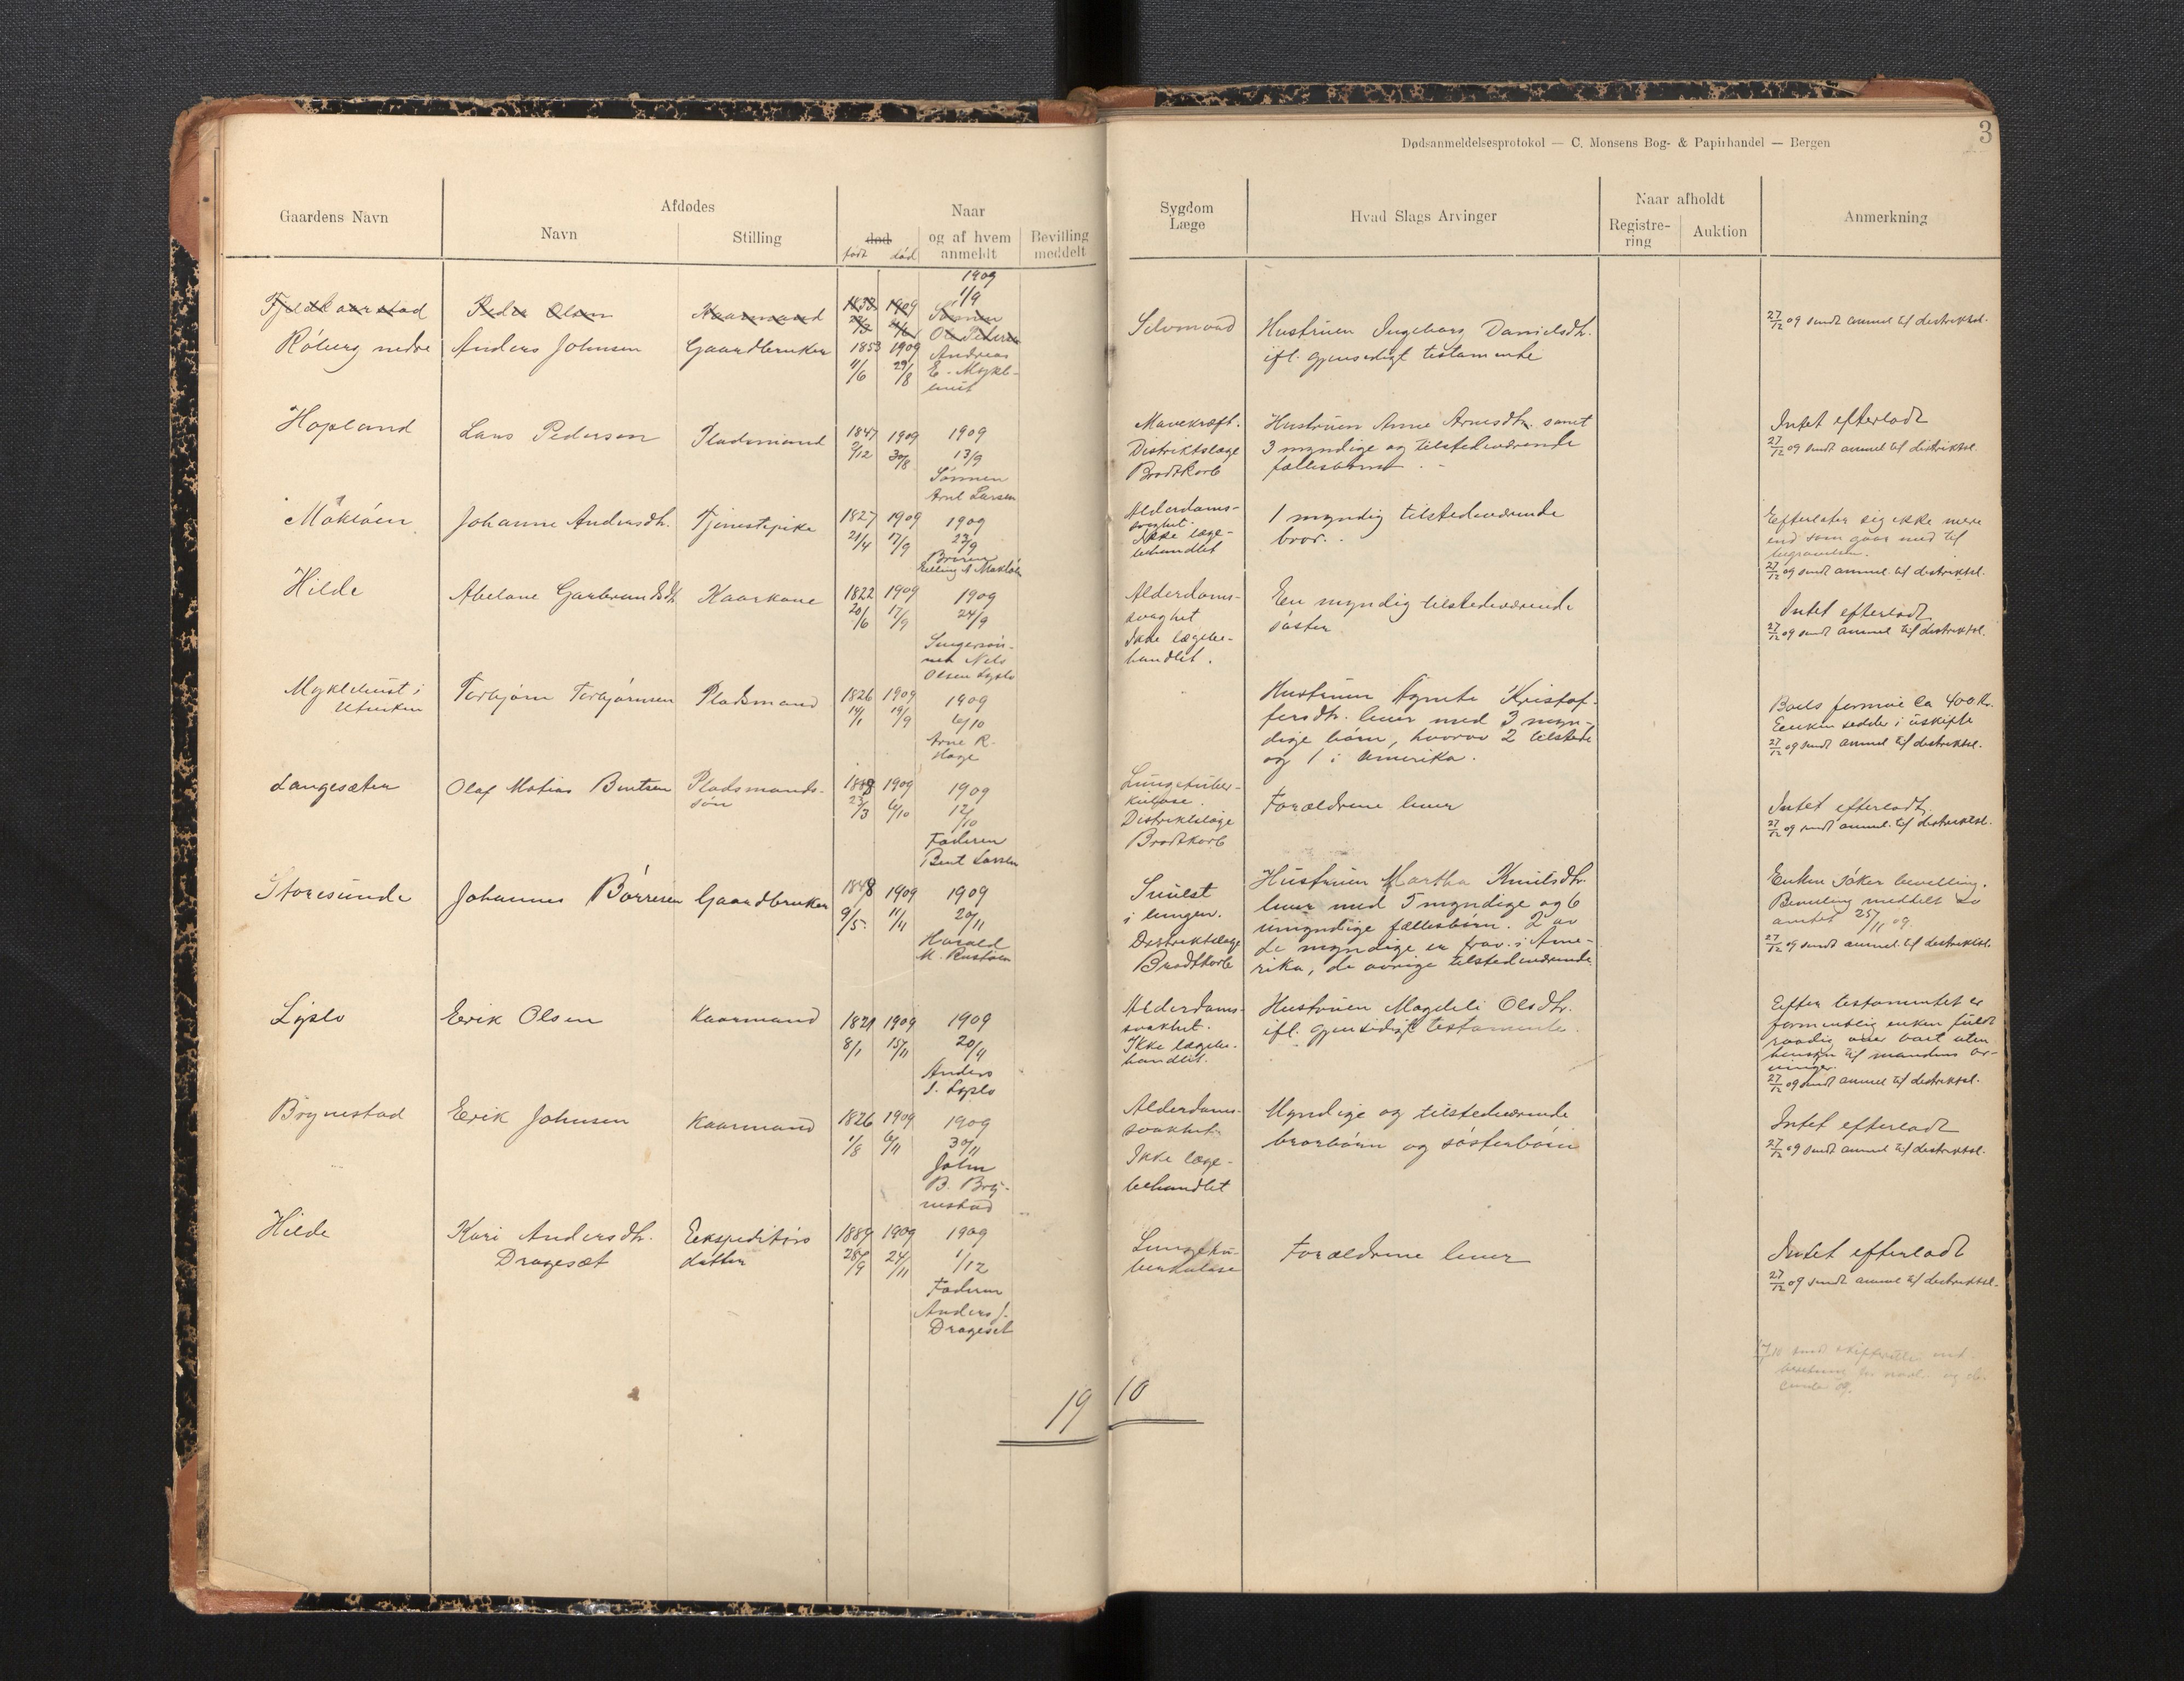 3
Dødsanmeldelsesprotokol — C. Monsens Bog- & Papirhandel — Bergen
Gaardens Navn
Afdødes
Navn
Stilling
Naar
død
født død
og af hvem
anmeldt
Bevilling
meddelt
Sygdom
Læge
Hvad Slags Arvinger
Naar afholdt
Registre-
ring
Auktion
Anmerkning
Peder Olsen Kaarmand 1909
1909
1/9
Sønnen
Ole Pedersen
Röberg nedre Anders Johnsen Gaardbruker 1853 1909
11/6 29/8
Andreas
E. Mykle-
bust
Selvmord
Hustruen Ingeborg Danielsdtr.
ifl. gjensidigt testamente
27/12 09 sendt anmel til distriktsl.
Hopland Lars Pedersen Pladsmand 1847 1909 1909
9/12 30/8 13/9
Sønnen
Arnt Larsen
Mavekræft.
Distriktslæge
Brodtkorb
Hustruen Anne Arnesdtr. samt
3 myndige og tilstedeværende
fællesbørn.
Intet efterladt
27/12 09 sendt anmel til distriktsl.
Maklöen Johanne Andersdtr. Tjenestepike 1827 1909 1909
21/4 17/9 23/9
Broren
Elling A Maklöen
Alderdoms-
svaghet.
Ikke læge-
behandlet
1 myndig tilstedeværende
bror.
Efterlater sig ikke mere
end som gaar med til
begravelsen.
27/12 09 sendt anmel. til distriktsl.
Hilde Abelone Garbrandsdtr Kaarkone 1822 1909 1909
20/6 17/9 24/9
nen Nils
Olsen Lyslo
Alderdoms-
svaghet
Ikke lægebe-
handlet.
En myndig tilstedeværende
søster
Intet efterladt
27/12 09 sendt anmel til distriktsl.
Myklebust i
Utvikn
Torbjørn Torbjørnsen Pladsmand 1826 1909 1909
14/1 19/9 6/10
Arne R.
Hage
Hustruen Agnete Kristof-
fersdtr. lever med 3 myn-
dige børn, hvorav 2 tilstede
og 1 i Amerika.
Boets formue ca 400 kr.
Enken sidder i uskifte
27/12 09 sendt anmel til distriktsl.
Langesæter Olaf Matias Bentsen Pladsmands-
søn
1888 1909 1909
23/3 6/10 12/10
Faderen
Bent Larsen
Lungetuber-
kulose.
Distriktslæge
Brodtkorb
Forældrene lever
Intet efterladt.
27/12 09 sendt anmel. til distriktsl.
Storesunde Johannes Börresen Gaardbruker 1848 1909 1909
9/5 11/11 20/11
Harald
M. Rustöen
Svulst
i lungen.
Distriktslæge
Brodtkorb
Hustruen Martha Knutsdtr.
lever med 5 myndige og 6
umyndige fællesbørn. 2 av
de myndige er frav. i Ame-
rika, de øvrige tilstedeværende
Enken søker bevilling.
Bevilling meddelt av
amtet 25/11 09.
27/12 09 sendt anmel. til distriktsl.
Lyslo Erik Olsen Kaarmand 1821 1909 1909
8/1 15/11 20/11
Anders
S. Lyslo
Alderdoms-
svakhet.
Ikke lægebe-
handlet.
Hustruen Magdeli Olsdtr.
ifl. gjensidigt testamente.
Efter testamentet er
formentlig enken fuldt
raadig over boet uten
hensyn til mandens ar-
vinger.
27/12 09 sendt anmel til distriktsl.
Brynestad Erik Johnsen Kaarmand 1826 1909 1909
1/8 6/11 30/11
John
B. Bry-
nestad
Alderdoms-
svakhet
Ikke læge-
behandlet
Myndige og tilstedeværende
brorbörn og søsterbörn
Intet efterladt
27/12 09 sendt anmel til distriktsl.
Hilde Kari Andersdtr.
Dragesæt
Ekspeditörs
datter
1889 1909 1909
28/9 24/11 1/12
Faderen
Anders J.
Dragesæt
Lungetu-
berkulose
Forældrene lever
Intet efterladt
27/12 09 sendt anmel til distriktsl.
19 10